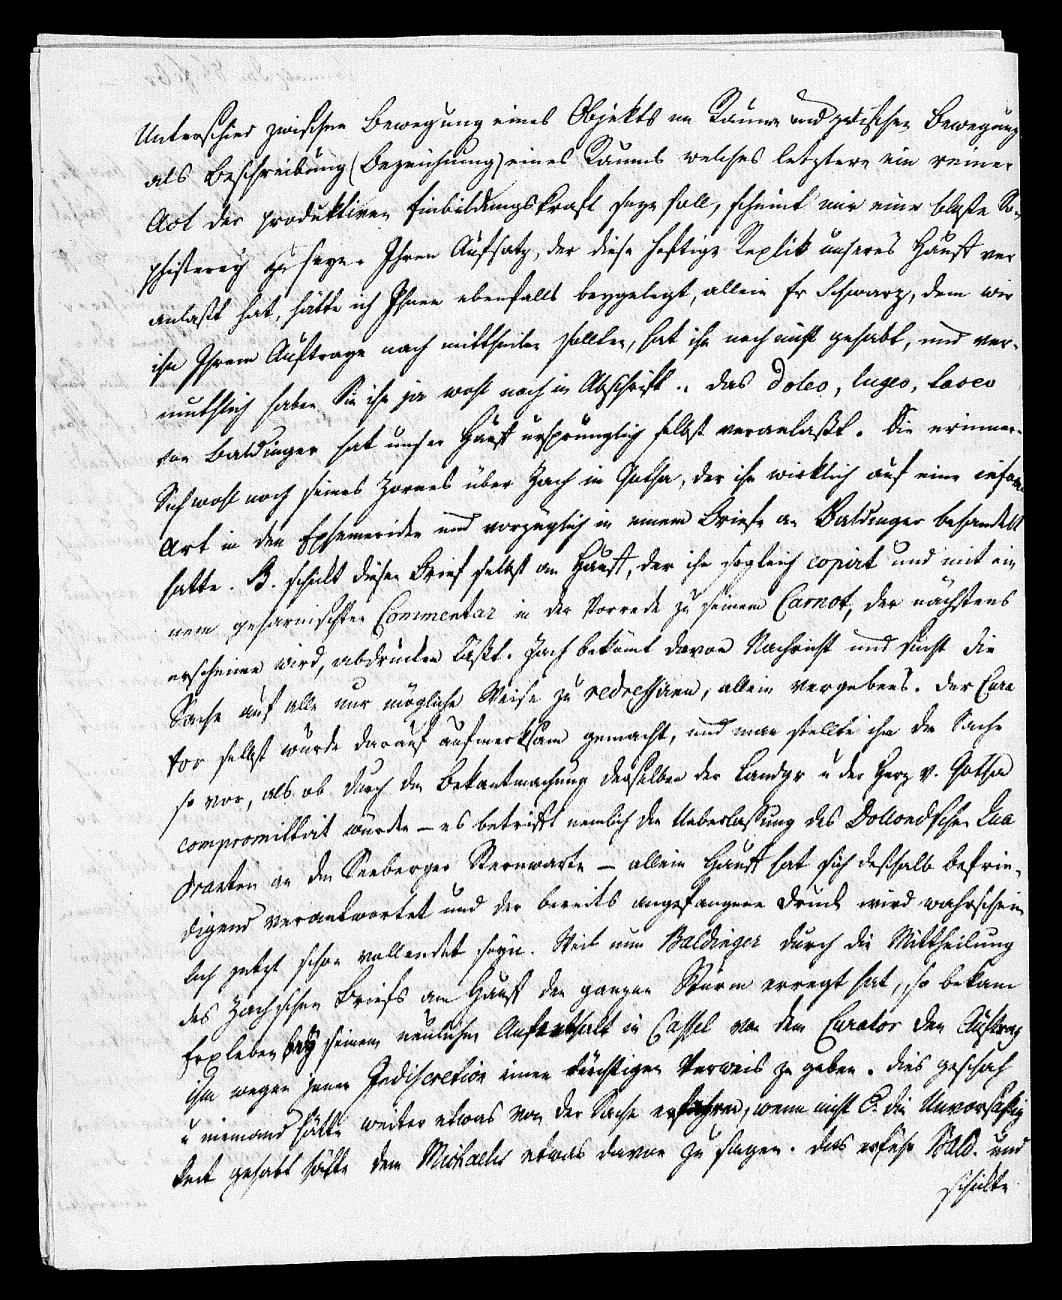 Unterschied zwischen Bewegung eines Objekts im Raume und zwischen Bewegung
als Beschreibung (Bezeichnung) eines Raums welches letztere ein reiner
Act der produktiven Einbildungskraft seyn soll, scheint mir eine bloße So-
phisterey zu seyn. Ihren Aufsatz, der diese heftige Replik unseres Hauff ver
anlaßt hat, hätte ich Ihnen ebenfalls beygelegt, allein Hr Schwarz, dem wir
ihn Ihrem Auftrage nach mittheilen sollten, hat ihn noch nicht gehabt, und ver-
muthlich haben Sie ihn ja wohl noch in Abschrift. Das doleo, lugeo, taceo
von Baldinger hat unser Hauff ursprünglich selbst veranlaßt. Sie erinnern
Sich wohl noch seines Zornes über Zach in Gotha, der ihn wirklich auf eine infame
Art in den Ephemeriden und vorzüglich in einem Briefe an Baldinger behandelt
hatte. B. schickt diesen Brief selbst an Hauff, der ihn sogleich copirt und mit ei
nem geharnischten Commentar in der Vorrede zu seinem Carnot, der nächstens
erscheinen wird, abdrucken läßt. Zach bekömt davon Nachricht und sucht die
Sache auf alle nur mögliche Weise zu redressiren, allein vergebens. Der Cura
tor selbst wurde darauf aufmerksam gemacht, und man stellte ihm die Sache
so vor, als ob durch die Bekantmachung derselben der Landgr u der Herz v. Gotha
compromittirt würden – es betrifft nemlich die Ueberlassung des Dollondschen Qua
dranten an die Seeberger Sternwarte – allein Hauff hat sich deshalb befrie-
digend verantwortet und der bereits angefangene Druck wird wahrschein
lich jetzt schon vollendet seyn. Weil nun Baldinger durch die Mittheilung
des Zachschen Briefs an Hauff den ganzen Sturm erregt hat, so bekam
Erxleben bey seinem neulichen Aufenthalt in Cassel von dem Curator den Auftrag
ihm wegen jener Indiscretion einen tüchtigen Verweis zu geben. Dies geschah
u niemand hätte weiter etwas von der Sache erfahren, wenn nicht E. die Unvorsichtig
keit gehabt hätte dem Michaelis etwas davon zu sagen. Das erfuhr Bald. und
schickte